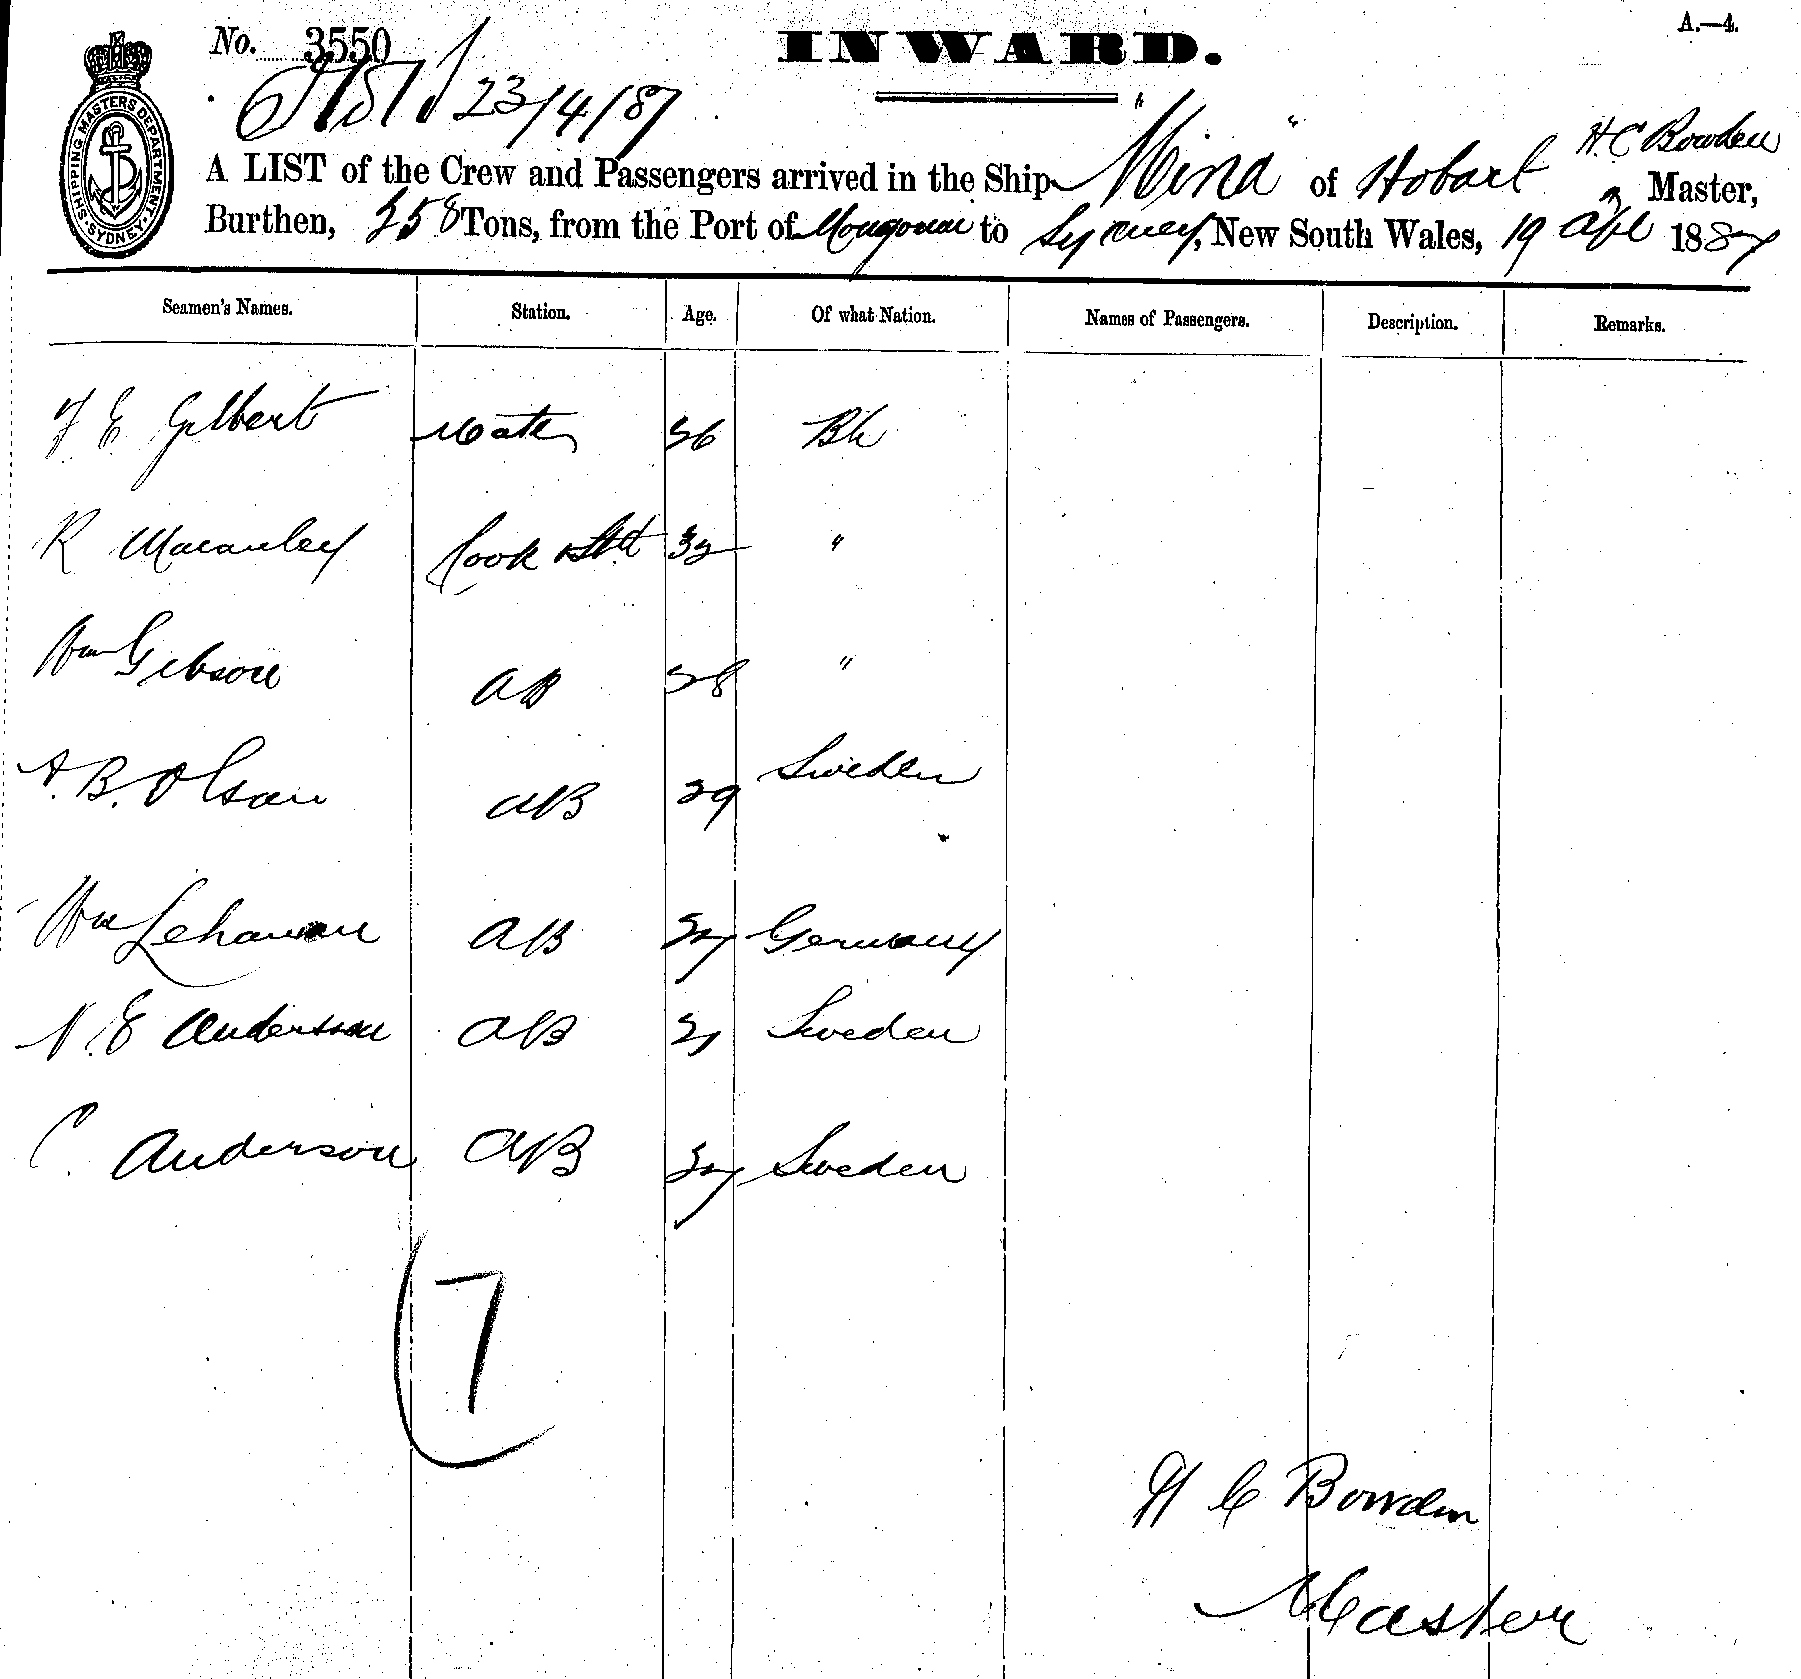 A.—4.
No. 3550
INWARD.
23/4/87
H. C Bowden
A LIST of the Crew and Passengers arrived in the Ship "Mina" of Hobart Master,
Burthen, 258 Tons, from the Port of Mongonui to Sydney, New South Wales, 19 Apl 1887
SHIPPING MASTERS DEPARTMENT SYDNEY
Seamen's Names. Station. Age. Of what Nation. Names of Passengers. Description. Remarks.
F. E Gilbert Mate 26 Bh
R Macauley Cook & Std 32 "
Wm Gibson AB 28 "
A. B. Olsan AB 29 Sweden
Wm Lehmann AB Germany
N. E Anderson AB 21 Sweden
C. Anderson AB Sweden
7
H C Bowden
Master